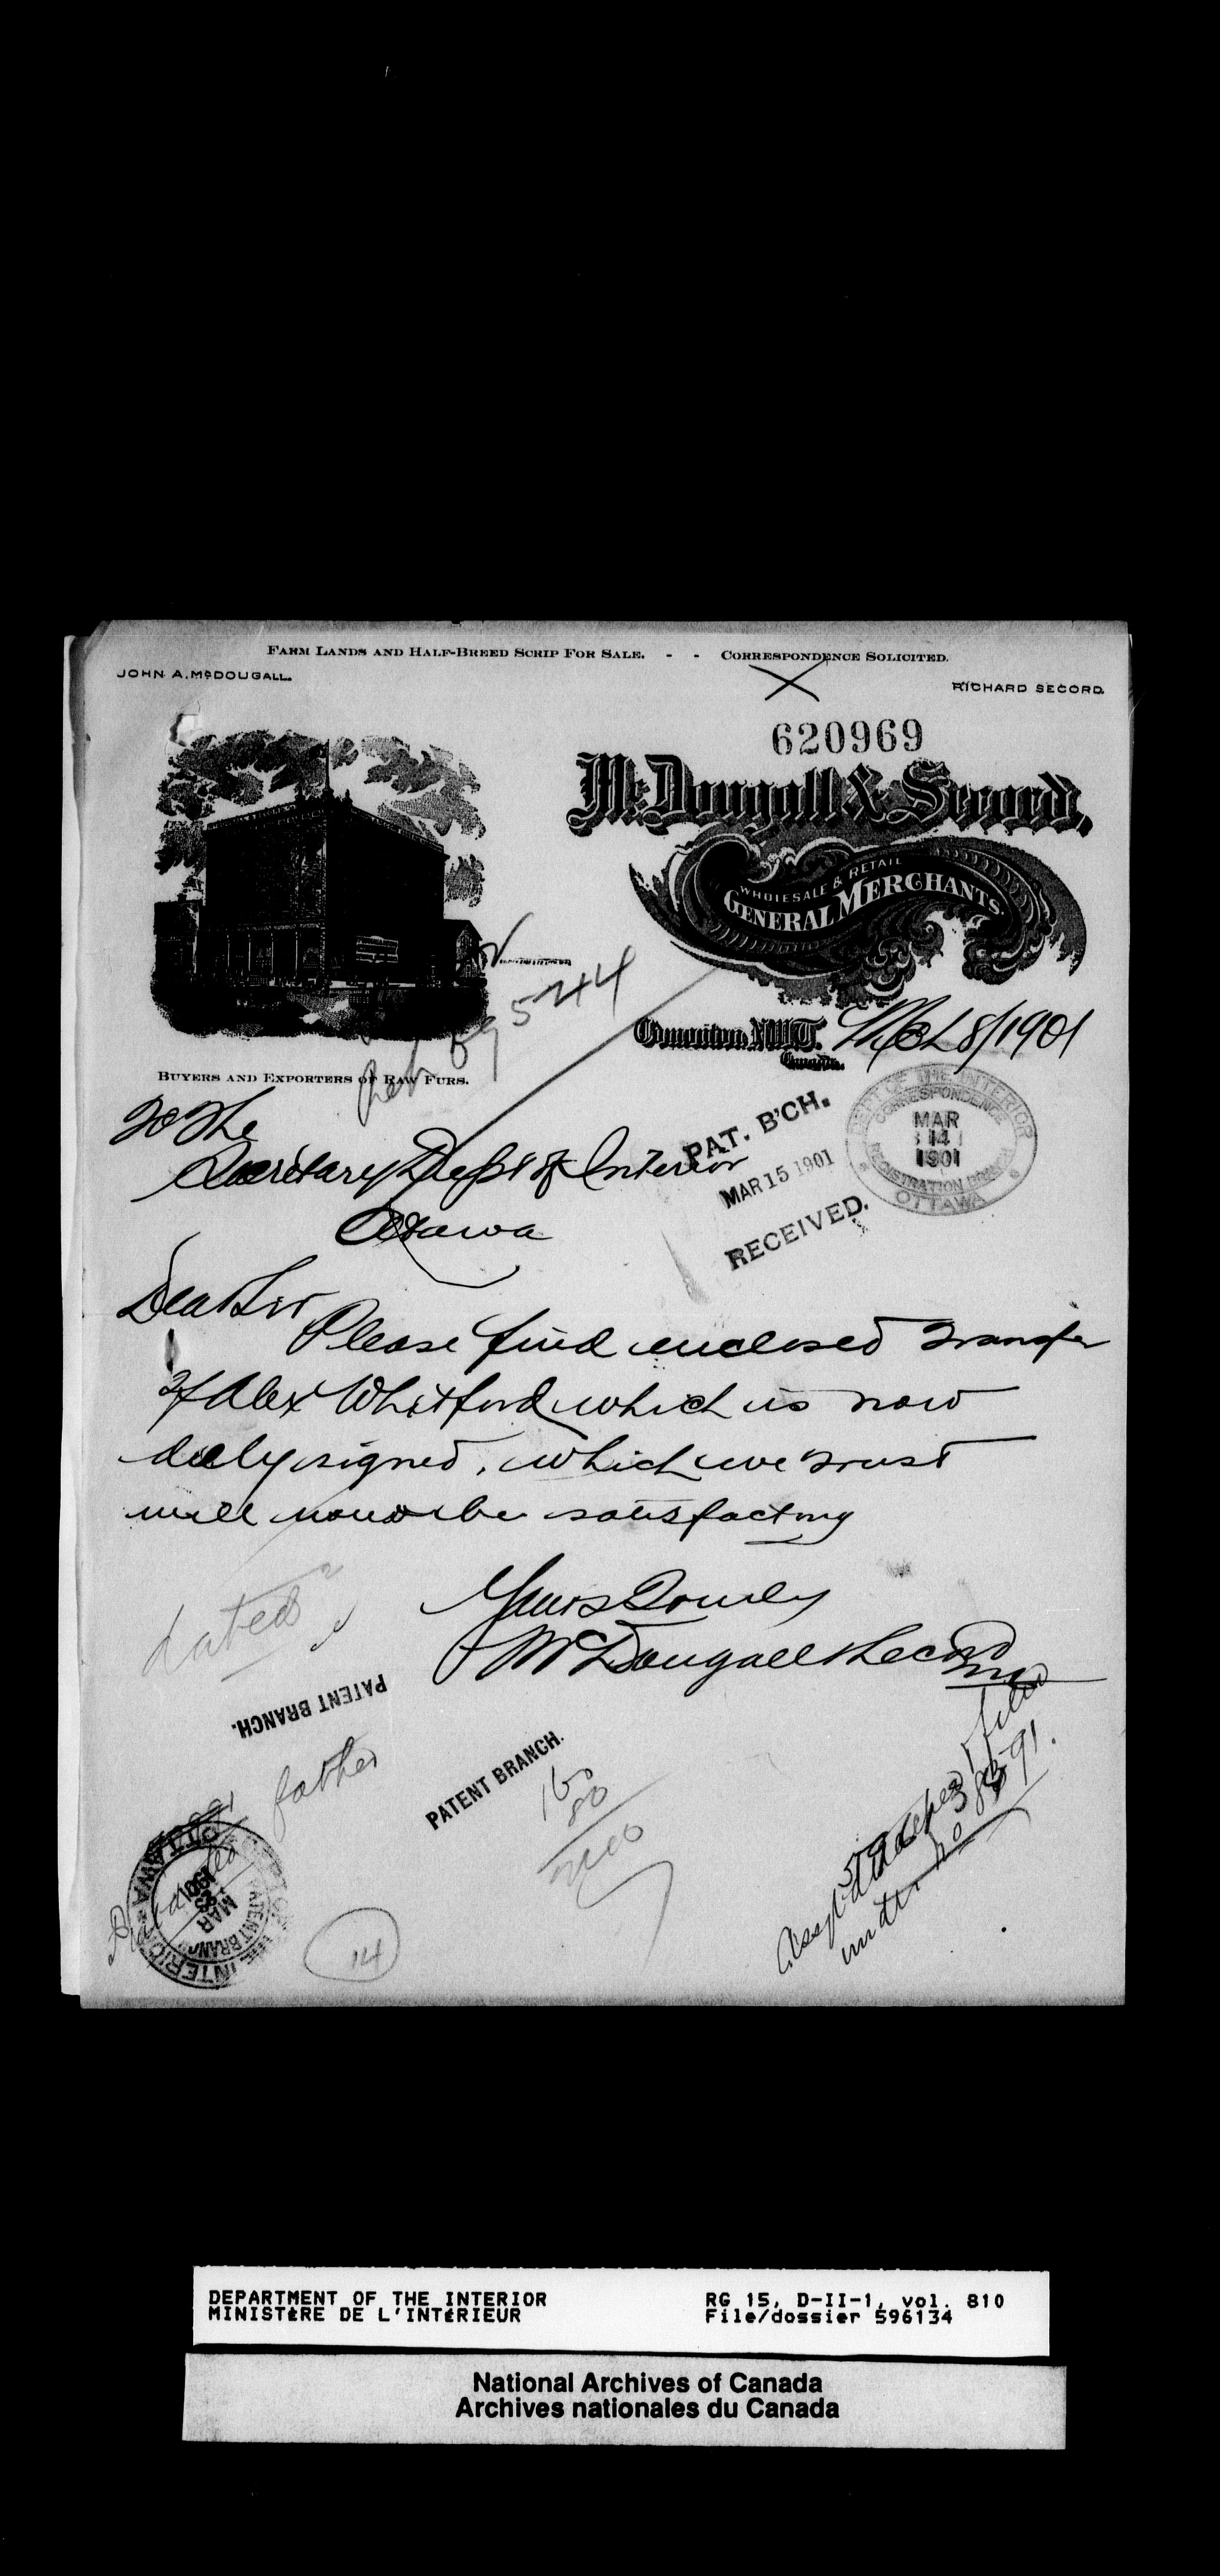 FARM LANDS AND HALF-BREED SCRIP FOR SALE. - - CORRESPONDENCE SOLICITED.
JOHN A. McDOUGALL.
RICHARD SECORD.
620969
McDougall & Secord,
WHOLESALE & RETAIL
GENERAL MERCHANTS.
595244
Edmonton, N.W.T. Mch 8/1901
Canada.
BUYERS AND EXPORTERS OF RAW FURS.
DEPT OF THE INTERIOR
CORRESPONDENCE
MAR
14
1901
REGISTRATION BRANCH
OTTAWA
PAT. B'CH.
MAR 15 1901
RECEIVED.
To The
Secretary Dept of Interior
Ottawa
Dear Sir
Please find enclosed transfer
of Alex Whitford which is now
duly signed, which we trust
will now be satisfactory
Yours Truly
McDougall & Secord
dated
PATENT BRANCH.
father
PATENT BRANCH.
160
80
240
filed
under no 38591.
OTTAWA
MAR
1901
PATENT BRANCH
INTERIOR
14
DEPARTMENT OF THE INTERIOR
MINISTÈRE DE L'INTÉRIEUR
RG 15, D-II-1, vol. 810
File/dossier 596134
National Archives of Canada
Archives nationales du Canada